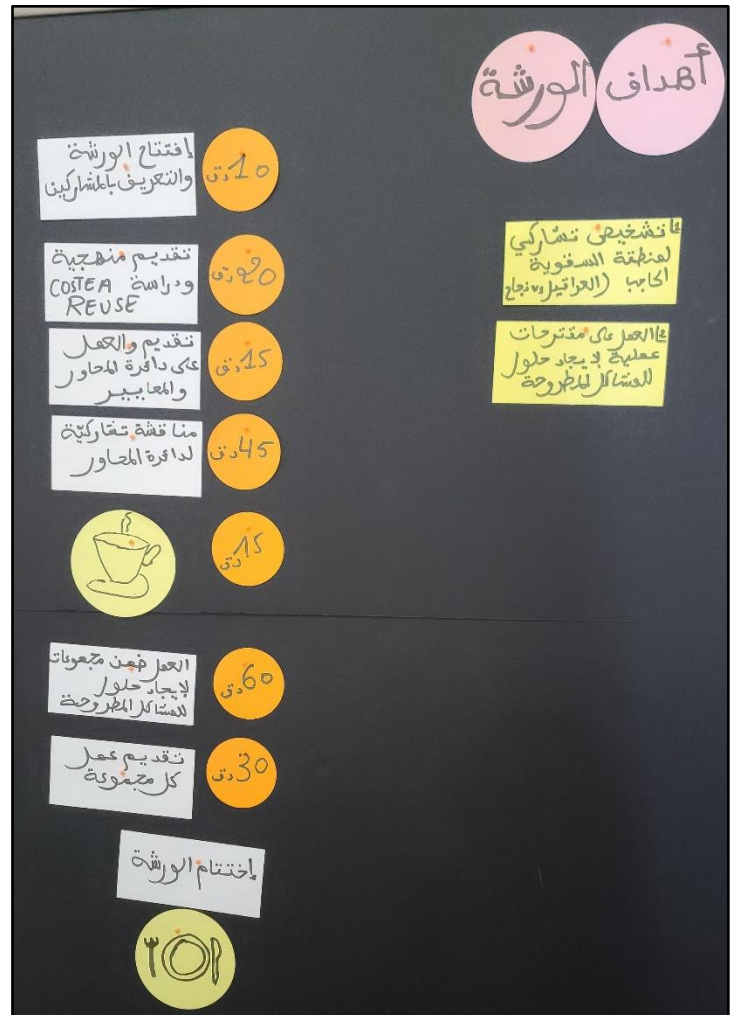 أهداف الورشة
تشخيص تشاركي
لمنطقة السقوية
الحاجب (العراقيل، نجاح
العمل على مقترحات
عملية لإيجاد حلول
للمشاكل المطروحة
10 دق
إفتتاح الورشة
والتعريف بالمشاركين
20 دق
تقديم منهجية
ودراسة COSTEA
REUSE
15 دق
تقديم والعمل
على دائرة المحاور
والمعايير
45 دق
مناقشة تشاركيّة
لدائرة المحاور
15 دق
60 دق
العمل ضمن مجموعات
لإيجاد حلول
للمشاكل المطروحة
30 دق
تقديم عمل
كل مجموعة
إختتام الورشة